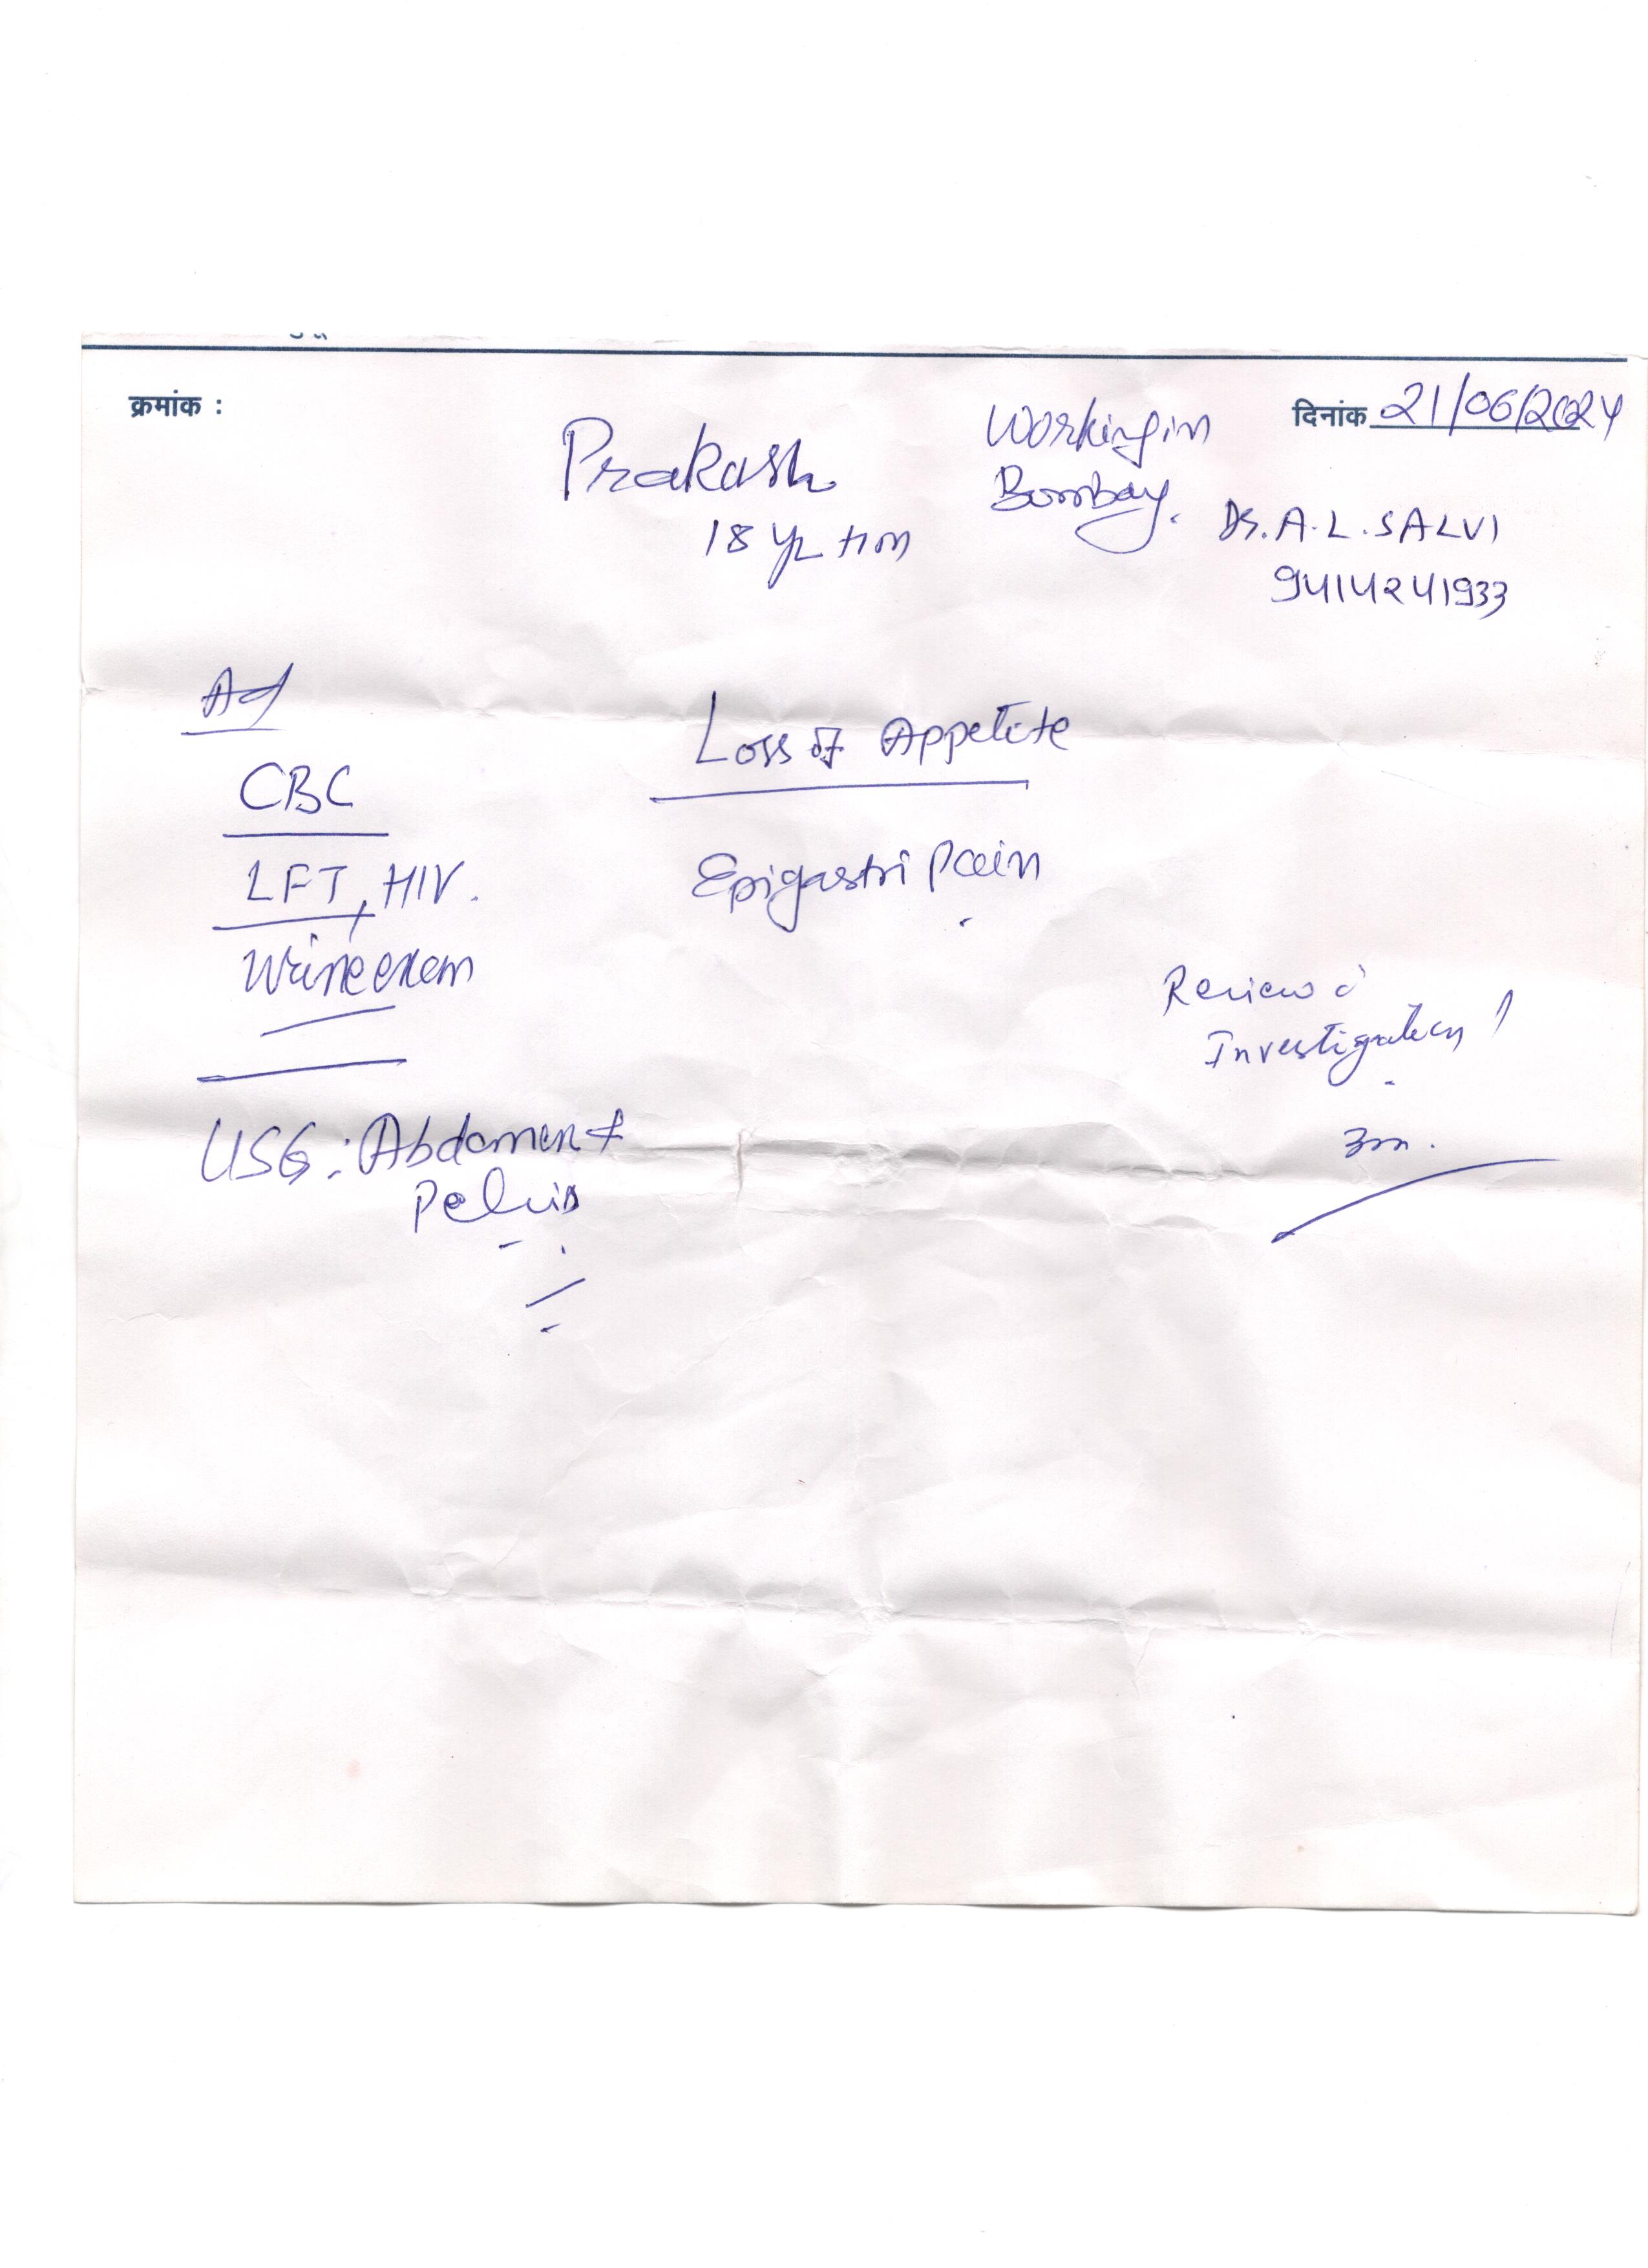 क्रमांक :
दिनांक 21/06/2024
Prakash
18 yr
Working in
Bombay.
Dr. A.L. SALVI
9414241933
Ad
CBC
LFT, HIV.
Urine exam
USG: Abdomen &
Pelvis
Loss of Appetite
Epigastri Pain
Review c̄
Investigation